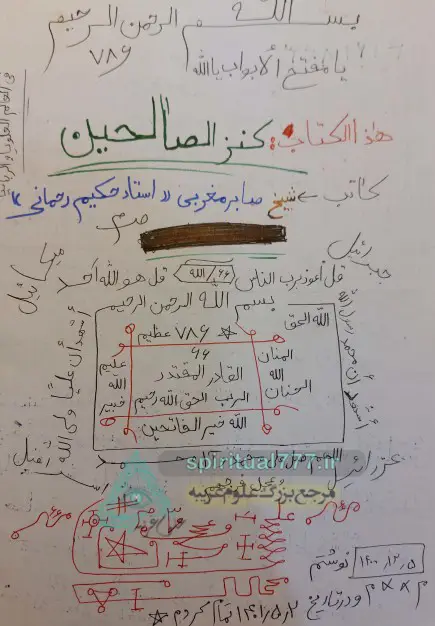 بسم الله الرحمن الرحیم
۷۸۶
یا مفتح الابواب یا الله
هذا الکتاب: کنز الصالحین
کاتب ← شیخ صابر مغربی «استاد حکیم رحمانی»
جبرائیل
میکائیل
قل اعوذ برب الناس ۶۶/الله قل هو الله احد
بسم الله الرحمن الرحیم
الله الحق
۷۸۶ عظیم
۶۶
القادر المقتدر
الرب الحق الله رحیم
المنان
الله
الحنان
علیم
الله
خبیر
الله خیر الفاتحین
اشهد أن محمد رسول الله
أشهد أن علیا ولی الله
عزرائیل
spiritual777.ir
مرجع بزرگ علوم غریبه
۱۴۰۰,۱۲,۵ نوشتم
و در تاریخ ۱۴۰۱,۵,۲ تمام کردم